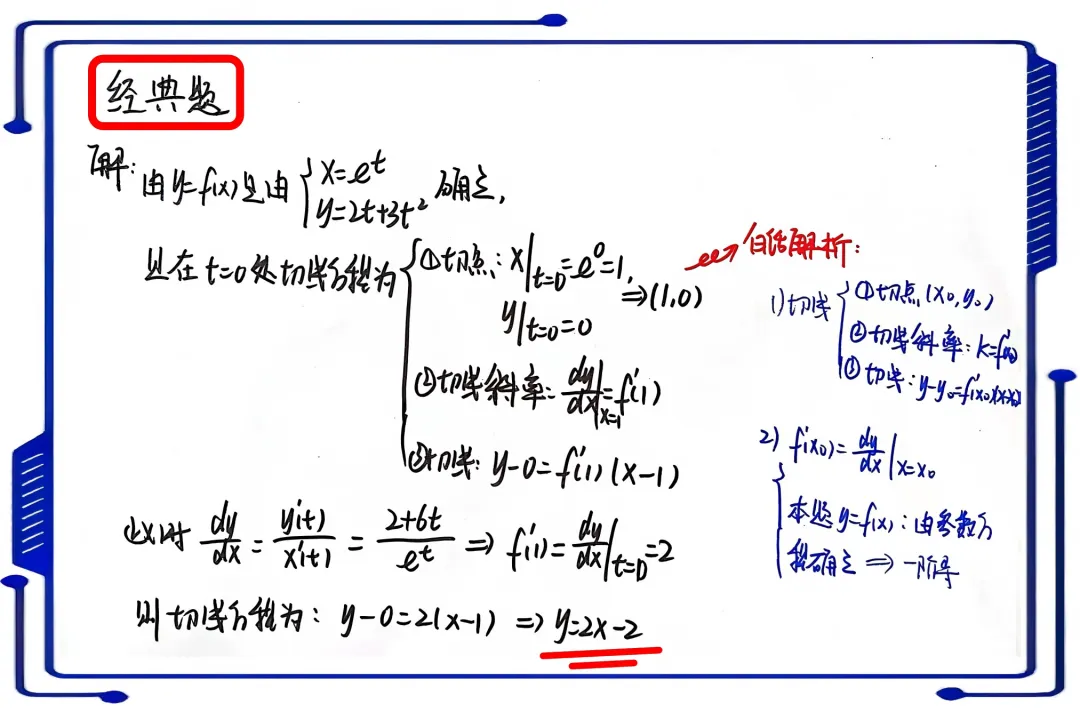 经典题
解:由y=f(x)是由{x=e^t
y=2t+3t²确定,
且在t=0处切线方程为{①切点:x|t=0=e⁰=1,
y|t=0=0
⇒(1,0)
②切线斜率:dy/dx|x=1=f'(1)
③切线:y-0=f'(1)(x-1)
又对 dy/dx=y'(t)/x'(t)=2+6t/e^t⇒f'(1)=dy/dx|t=0=2
则切线方程为:y-0=2(x-1)⇒y=2x-2
白话解析:
1)切线{①切点(x₀,y₀)
②切线斜率:k=f'(x₀)
③切线:y-y₀=f'(x₀)(x-x₀)
2)f'(x₀)=dy/dx|x=x₀
{本题y=f(x):由参数方
程确定⇒一阶导